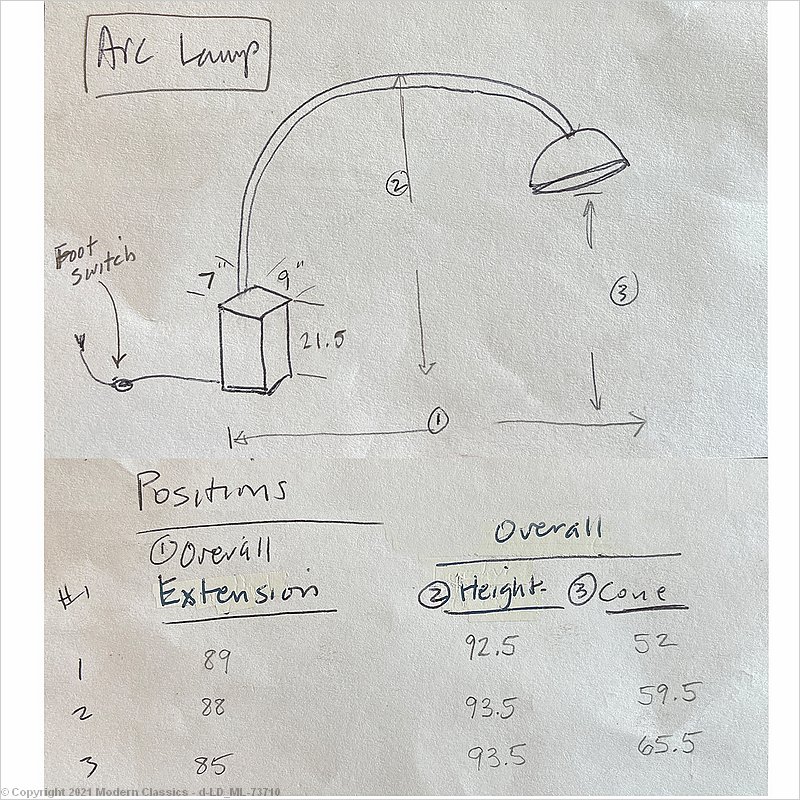 Arc Lamp
②
Foot
switch
7" 9"
③
21.5
①
Positions
① Overall
Overall
#1 Extension ② Height- ③ Cone
1 89 92.5 52
2 88 93.5 59.5
3 85 93.5 65.5
© Copyright 2021 Modern Classics - d-LD_ML-73710